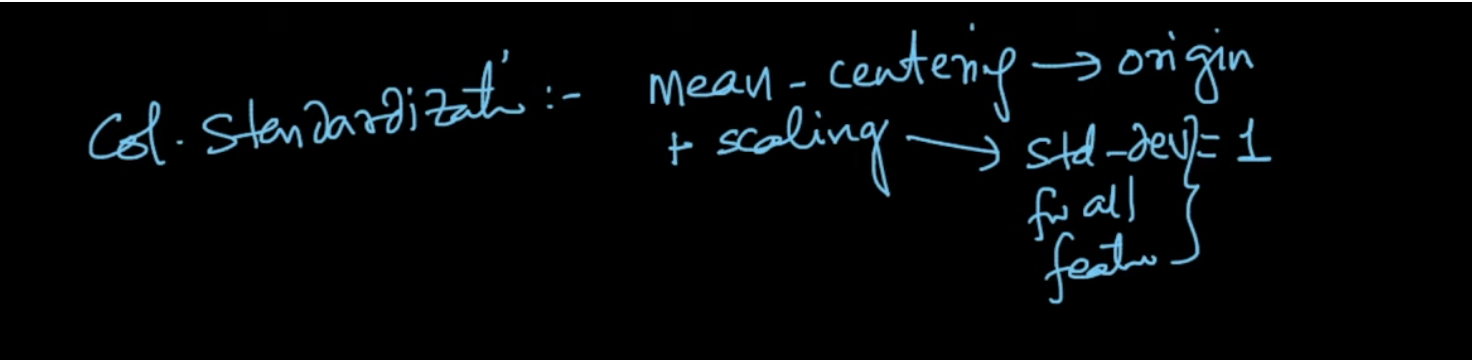 Col. Standardizatn :- Mean - centering → origin
+ scaling → std-dev = 1
for all
featu